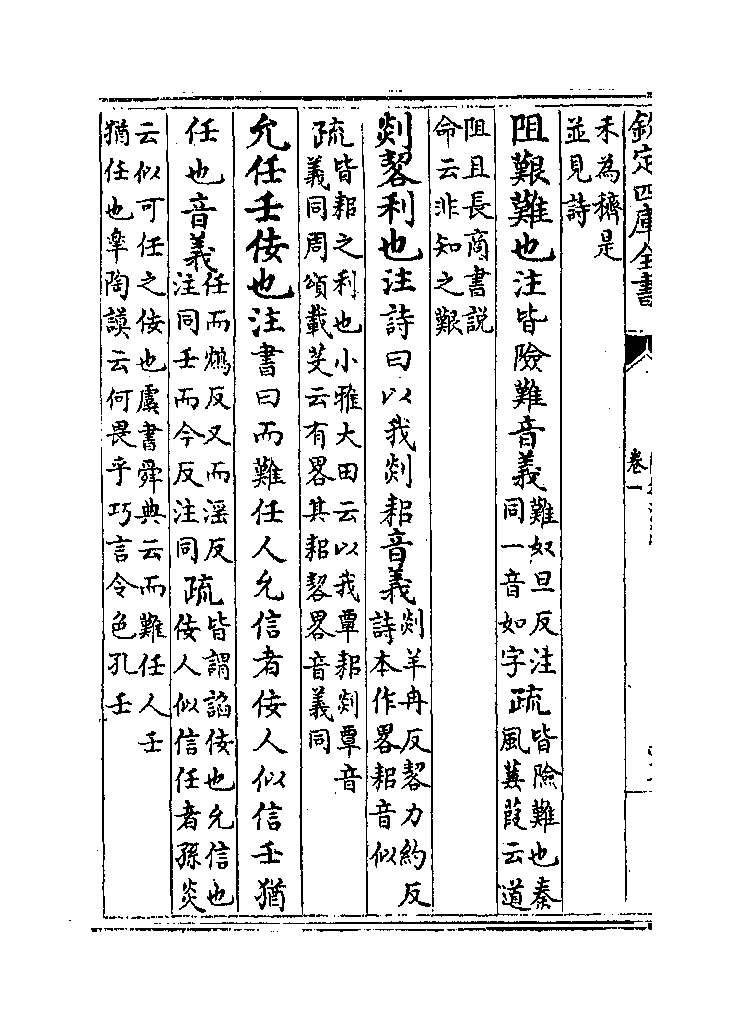 欽定四庫全書
卷一
禾為穧是
並見詩
阻艱難也注皆險難音義難奴旦反注同一音如字疏皆險難也秦風蒹葭云道
阻且長商書説
命云非知之艱
剡䂮利也注詩曰以我剡耜音義剡羊冉反䂮力約反詩本作畧耜音似
疏皆耜之利也小雅大田云以我覃耜剡覃音義同周頌載芟云有畧其耜䂮畧音義同
允任壬佞也注書曰而難任人允信者佞人似信壬猶
任也音義任而鴆反又而滛反注同壬而今反注同疏皆謂諂佞也允信也佞人似信任者孫炎
云似可任之佞也虞書舜典云而難任人壬
猶任也臯陶謨云何畏乎巧言令色孔壬